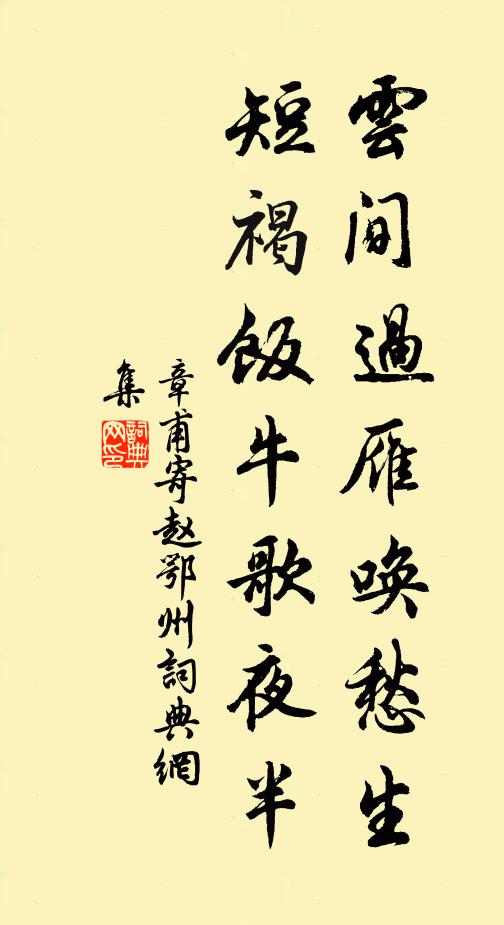 雲間過雁喚愁生
短褐飯牛歌夜半
章甫寄赵鄂州詞典網
集
詞典网印